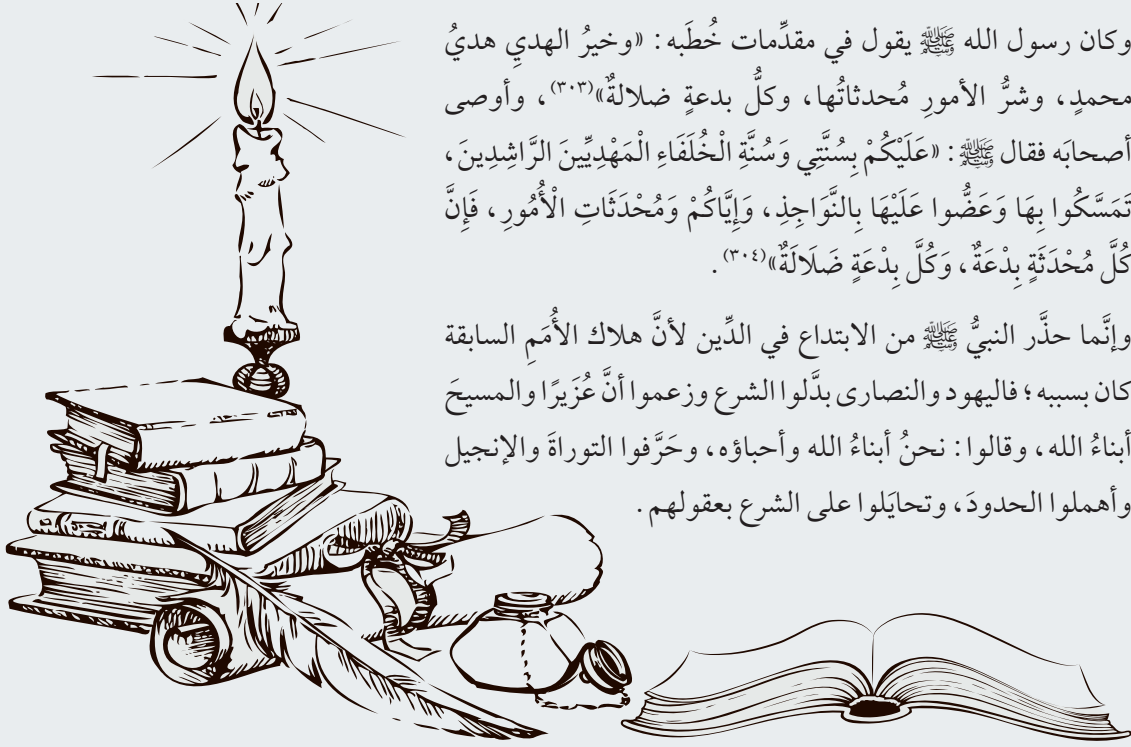 وكان رسول الله ﷺ يقول في مقدِّمات خُطَبه: «وخيرُ الهديِ هديُ
محمدٍ، وشرُّ الأمورِ مُحدثاتُها، وكلُّ بدعةٍ ضلالةٌ»(٣٠٣)، وأوصى
أصحابَه فقال ﷺ: «عَلَيْكُمْ بِسُنَّتِي وَسُنَّةِ الْخُلَفَاءِ الْمَهْدِيِّينَ الرَّاشِدِينَ،
تَمَسَّكُوا بِهَا وَعَضُّوا عَلَيْهَا بِالنَّوَاجِذِ، وَإِيَّاكُمْ وَمُحْدَثَاتِ الْأُمُورِ، فَإِنَّ
كُلَّ مُحْدَثَةٍ بِدْعَةٌ، وَكُلَّ بِدْعَةٍ ضَلَالَةٌ»(٣٠٤).
وإنَّما حذَّر النبيُّ ﷺ من الابتداع في الدِّين لأنَّ هلاك الأُمَمِ السابقة
كان بسببه؛ فاليهود والنصارى بدَّلوا الشرع وزعموا أنَّ عُزَيرًا والمسيحَ
أبناءُ الله، وقالوا: نحنُ أبناءُ الله وأحباؤه، وحَرَّفوا التوراةَ والإنجيل
وأهملوا الحدودَ، وتحايَلوا على الشرع بعقولهم.